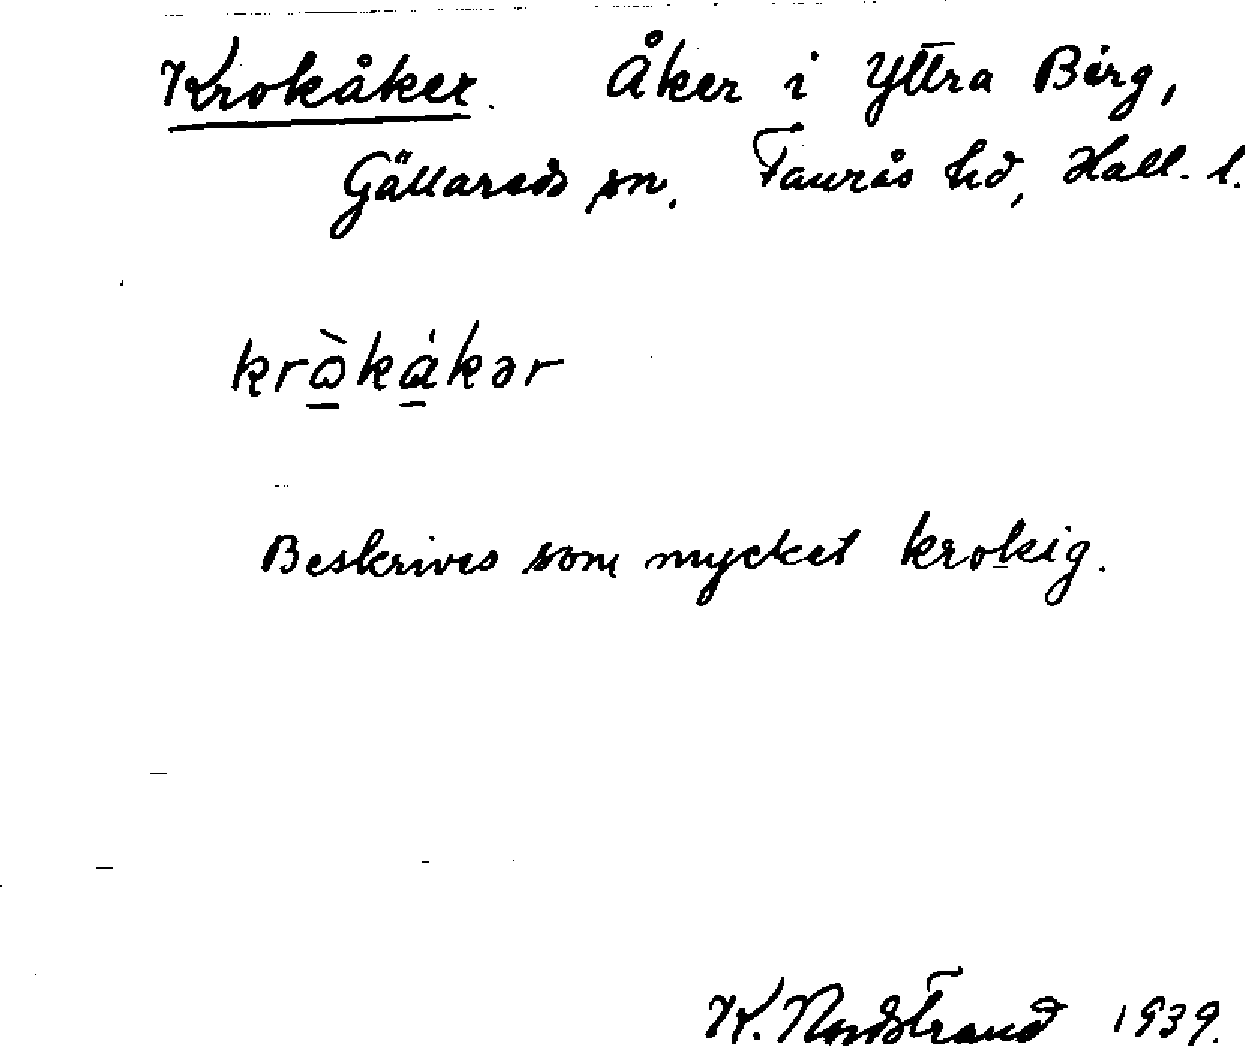 Krokåker. Åker i Yttra Berg,
Gällareds sn. Faurås hd, Hall. l.
krɷ̀kɑ́kər
Beskrives som mycket krokig.
K. Nordstrand 1939.